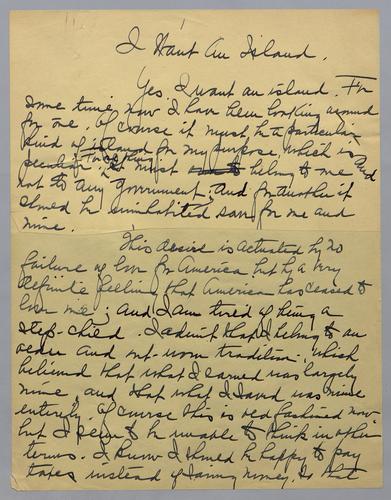 I Want An Island.
Yes I want an island. For
some time now I have been looking around
for one. Of course it must be a particular
kind of island for my purpose, which is
peculiar. It must belong to me and
not to any Government; and for another it
should be uninhabited save for me and
mine.
This desire is actuated by no
failure of love for America but by a very
definite feeling that America has ceased to
love me; and I am tired of being a
step-child. I admit that I belong to an
older and out-worn tradition, which
believed that what I earned was largely
mine, and that what I saved was mine
entirely. Of course this is old fashioned now
but I seem to be unable to think in other
terms. I know I should be happy to pay
taxes instead of saving money, so that